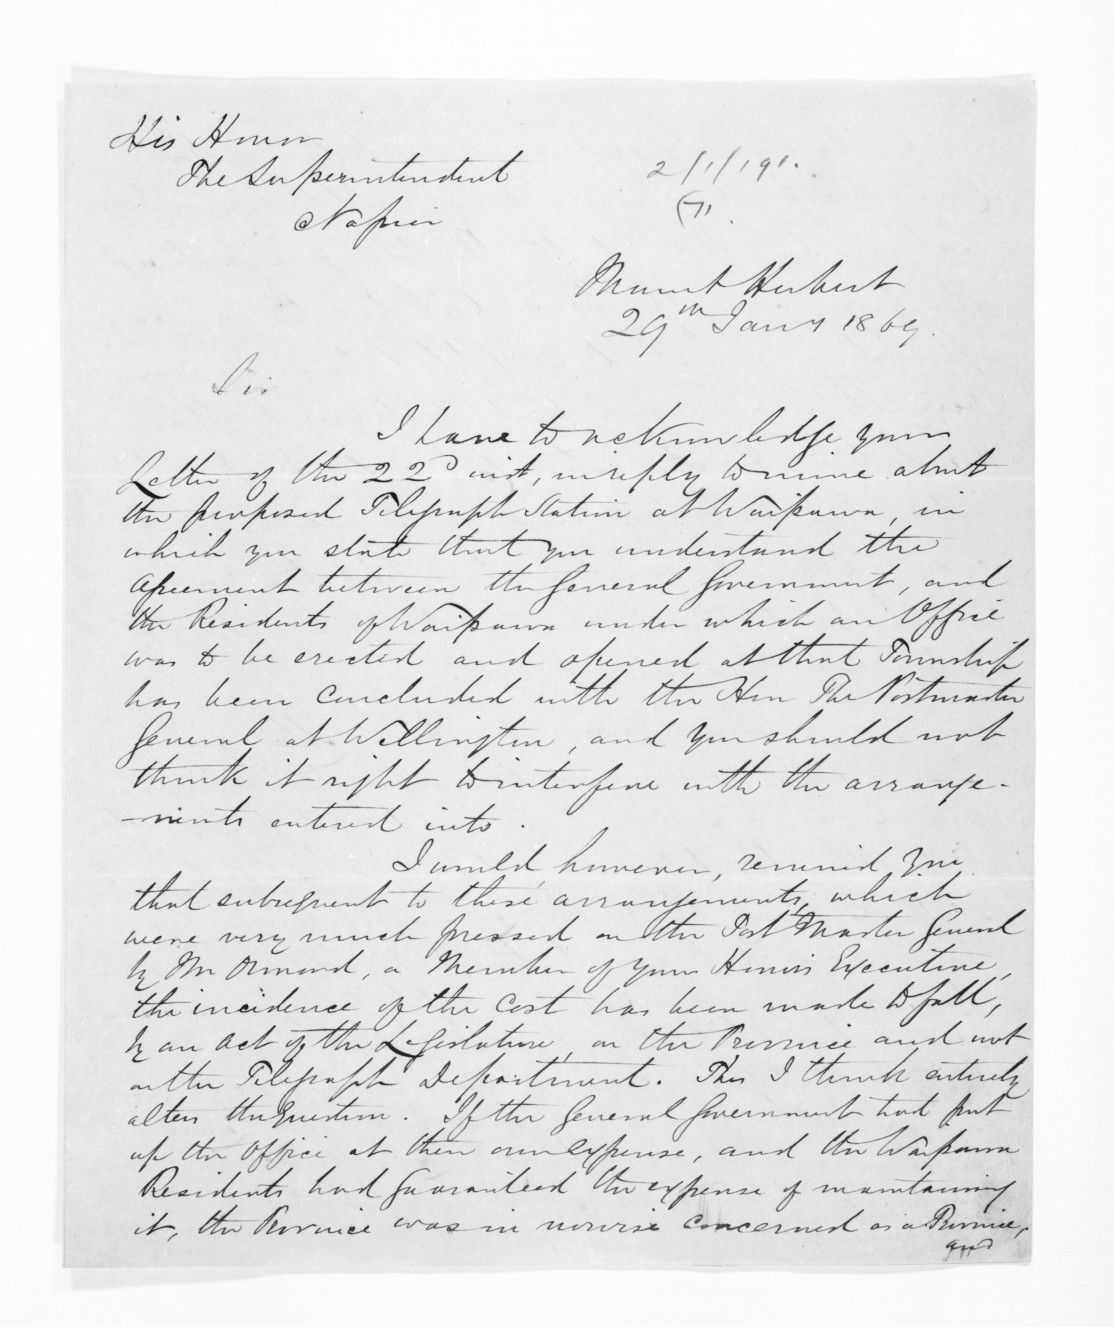 His Honor
The Superintendent
Napier
2/1/191.
(71.
Mount Herbert
29th Jany 1869.
Sir
I have to acknowledge your
Letter of the 22d inst, in reply to mine about
the proposed Telegraph Station at Waipawa, in
which you state that you understand the
agreement between the General Government, and
the Residents of Waipawa under which an Office
was to be erected and opened at that Township
has been concluded with the Hon The Postmaster
General at Wellington, and you should not
think it right to interfere with the arrange-
-ments entered into.
I would however, remind you
that subsequent to these arrangements, which
were very much pressed on the Post Master General
by Mr Ormond, a Member of your Honor's Executive,
the incidence of the cost has been made to fall,
by an act of the Legislature, on the Province and not
on the Telegraph Department. This I think entirely
alters the Question. If the General Government had put
up the Office at their own expense, and the Waipawa
Residents had guaranteed the expense of maintaining
it, the Province was in nowise concerned as a Province,
and